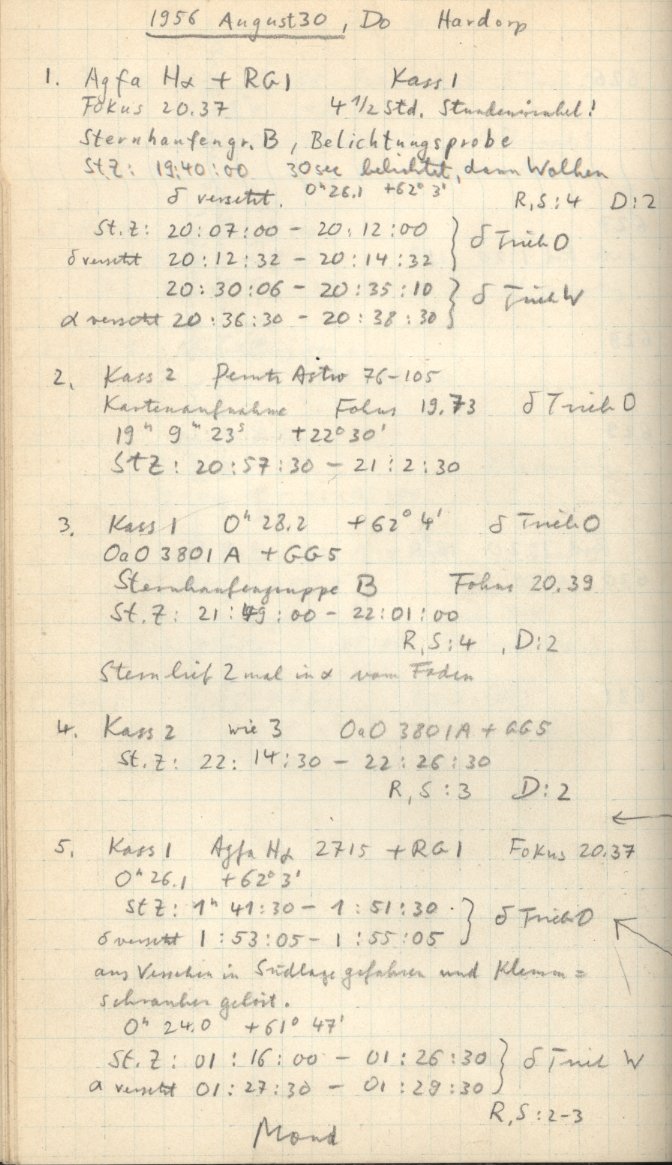 1956 August 30, Do Hardorp
1. Agfa Hα + RG1 Kass 1
Fokus 20.37 4 1/2 Std. Stundenwinkel!
Sternhaufengr. B, Belichtungsprobe
St.Z: 19:40:00 30sec belichtet, dann Wolken
δ versetzt. 0ʰ26.1 +62° 3'
R,S:4 D:2
St.Z: 20:07:00 – 20:12:00 } δ Trieb O
δ versetzt 20:12:32 – 20:14:32
20:30:06 – 20:35:10 } δ Trieb W
α versetzt 20:36:30 – 20:38:30
2. Kass 2 Astro 76-105
Kartenaufnahme Fokus 19.73 δ Trieb O
19ʰ 9ᵐ 23ˢ +22°30'
StZ: 20:57:30 – 21:2:30
3. Kass 1 0ʰ 28.2 +62° 4' δ Trieb O
OaO 3801 A + GG5
Sternhaufengruppe B Fokus 20.39
St.Z: 21:49:00 – 22:01:00
R,S:4, D:2
Stern lief 2 mal in α vom Faden
4. Kass 2 wie 3 OaO 3801A + GG5
St.Z: 22:14:30 – 22:26:30
R,S:3 D:2
5. Kass 1 Agfa Hα 2715 + RG1 Fokus 20.37
0ʰ 26.1 +62° 3'
StZ: 1ʰ 41:30 – 1:51:30 } δ Trieb O
δ versetzt 1:53:05 – 1:55:05
aus Versehen in Südlage gefahren und Klemm=
schrauben gelöst.
0ʰ 24.0 +61° 47'
St.Z: 01:16:00 – 01:26:30 } δ Trieb W
α versetzt 01:27:30 – 01:29:30
R,S:2-3
Mond